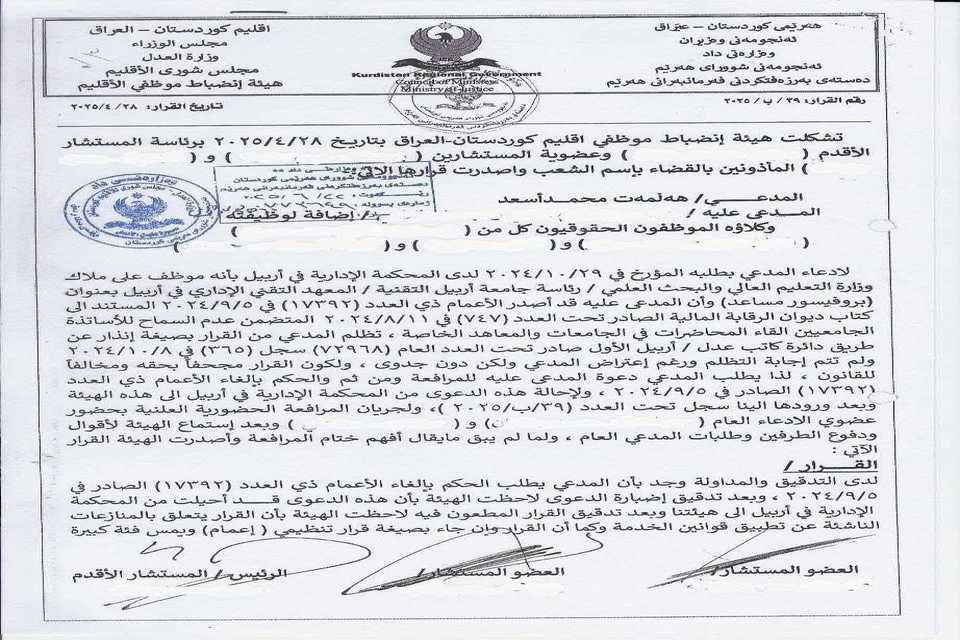 اقليم كوردستان - العراق
مجلس الوزراء
وزارة العدل
مجلس شورى الأقليم
هيئة إنضباط موظفي الأقليم
هەرێمی كوردستان - عێراق
ئەنجومەنی وەزیران
وەزارەتی داد
ئەنجومەنی شوورای هەرێم
دەستەی بەرزەفتكردنی فەرمانبەرانی هەرێم
Kurdistan Regional Government
Council of Ministers
Ministry of Justice
رقم القرار: ٣٩/ ب/ ٢٠٢٥
تاريخ القرار: ٢٠٢٥/٤/٢٨
تشكلت هيئة إنضباط موظفي اقليم كوردستان-العراق بتاريخ ٢٠٢٥/٤/٢٨ برئاسة المستشار
الأقدم ( ) وعضوية المستشارين ( ) و ( )
المأذونين بالقضاء بإسم الشعب واصدرت قرارها الاتي:
المدعـــــي/ هەڵمەت محمدأسعد
المدعى عليه / / إضافة لوظيفته
وكلاؤه الموظفون الحقوقيون كل من ( )
( ) و ( ) و ( )
لادعاء المدعي بطلبه المؤرخ في ٢٠٢٤/١٠/٢٩ لدى المحكمة الإدارية في أربيل بأنه موظف على ملاك
وزارة التعليم العالي والبحث العلمي / رئاسة جامعة أربيل التقنية / المعهد التقني الإداري في أربيل بعنوان
(بروفيسور مساعد) وأن المدعى عليه قد أصدر الأعمام ذي العدد (١٧٣٩٢) في ٢٠٢٤/٩/٥ المستند الى
كتاب ديوان الرقابة المالية الصادر تحت العدد (٧٤٧) في ٢٠٢٤/٨/١١ المتضمن عدم السماح للأساتذة
الجامعيين القاء المحاضرات في الجامعات والمعاهد الخاصة ، تظلم المدعي من القرار بصيغة إنذار عن
طريق دائرة كاتب عدل / أربيل الأول صادر تحت العدد العام (٧٢٩٦٨) سجل (٣٦٥) في ٢٠٢٤/١٠/٨
ولم تتم إجابة التظلم ورغم إعتراض المدعي ولكن دون جدوى ، ولكون القرار مجحفاً بحقه ومخالفاً
للقانون ، لذا يطلب المدعي دعوة المدعى عليه للمرافعة ومن ثم والحكم بإلغاء الأعمام ذي العدد
(١٧٣٩٢) الصادر في ٢٠٢٤/٩/٥ ، ولإحالة هذه الدعوى من المحكمة الإدارية في أربيل الى هذه الهيئة
وبعد ورودها الينا سجل تحت العدد (٣٩/ب/٢٠٢٥)، ولجريان المرافعة الحضورية العلنية بحضور
عضوي الادعاء العام ( ) و ( ) وبعد إستماع الهيئة لأقوال
ودفوع الطرفين وطلبات المدعي العام ، ولما لم يبق مايقال أفهم ختام المرافعة وأصدرت الهيئة القرار
الآتي :
القـــرار /
لدى التدقيق والمداولة وجد بأن المدعي يطلب الحكم بإلغاء الأعمام ذي العدد (١٧٣٩٢) الصادر في
٢٠٢٤/٩/٥ ، وبعد تدقيق إضبارة الدعوى لاحظت الهيئة بأن هذه الدعوى قد أحيلت من المحكمة
الإدارية في أربيل الى هيئتنا وبعد تدقيق القرار المطعون فيه لاحظت الهيئة بأن القرار يتعلق بالمنازعات
الناشئة عن تطبيق قوانين الخدمة وكما أن القرار وإن جاء بصيغة قرار تنظيمي ( إعمام) ويمس فئة كبيرة
العضو المستشار/
العضو المستشار/
الرئيس/ المستشار الأقدم